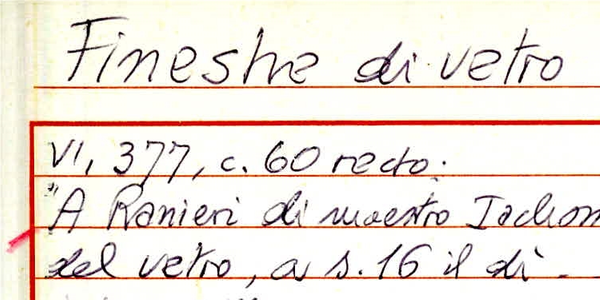 Finestre di vetro
VI, 377, c. 60 recto.
"A Ranieri di maestro Iachom
del vetro, a s. 16 il dì.